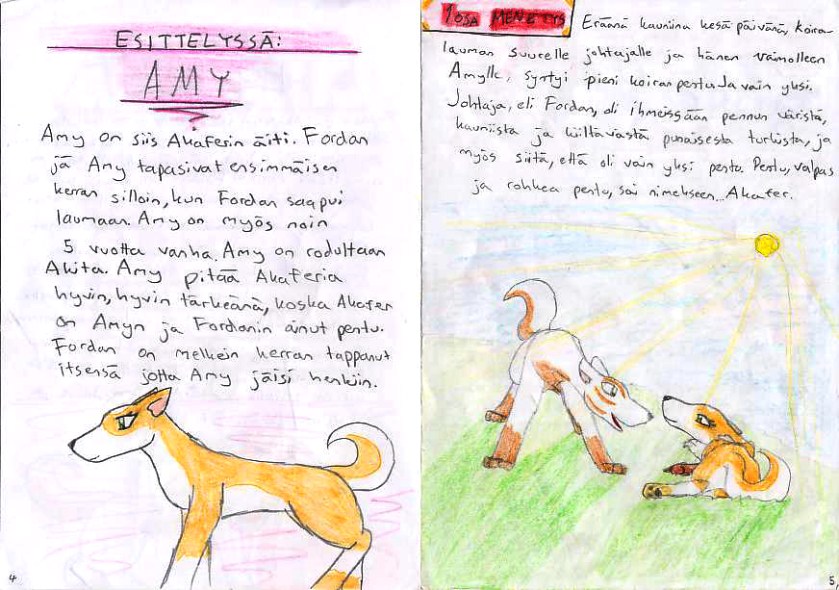 ESITTELYSSÄ:
AMY
Amy on siis Akaferin äiti. Fordan
ja Amy tapasivat ensimmäisen
kerran silloin, kun Fordan saapui
laumaan. Amy on myös noin
5 vuotta vanha. Amy on rodultaan
Akita. Amy pitää Akaferia
hyvin, hyvin tärkeänä, koska Akafer
on Amyn ja Fordanin ainut pentu.
Fordan on melkein kerran tappanut
itsensä jotta Amy jäisi henkiin.
4
1 OSA MENETYS
Eräänä kauniina kesäpäivänä, koira-
lauman suurelle johtajalle ja hänen vaimolleen
Amylle, syntyi pieni koiranpentu. Ja vain yksi.
Johtaja, eli Fordan, oli ihmeissään pennun väristä,
kauniista ja kiiltävästä punaisesta turkista, ja
myös siitä, että oli vain yksi pentu. Pentu, valpas
ja rohkea pentu, sai nimekseen... Akafer.
5